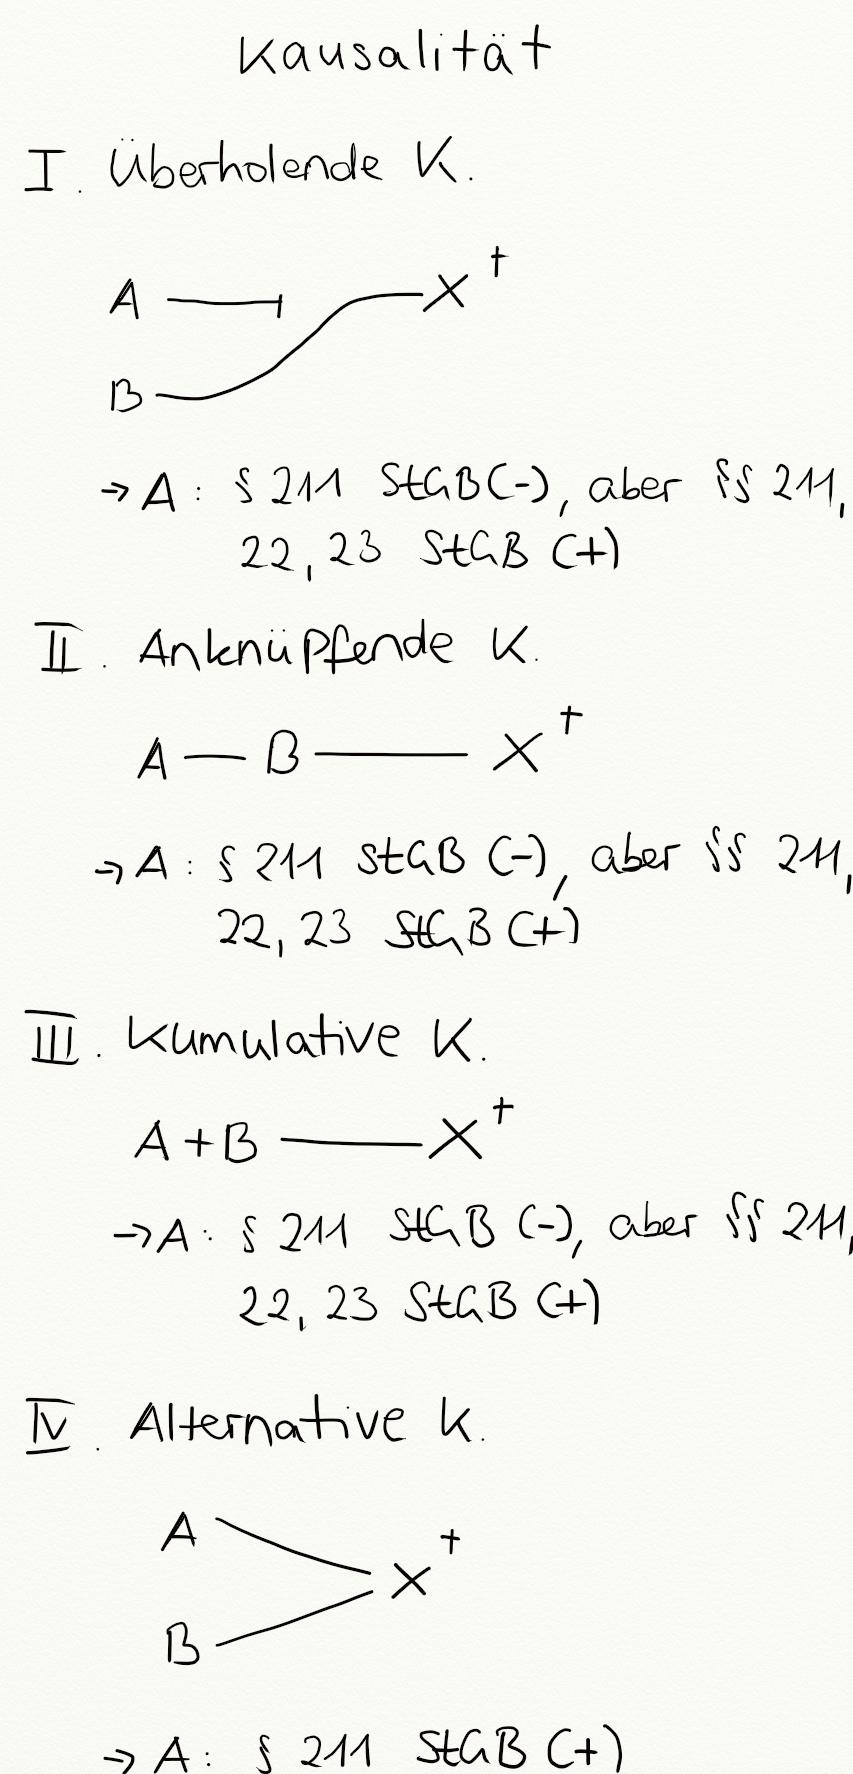 Kausalität
I. Überholende K.
A X †
B
→ A: § 211 StGB (-), aber §§ 211,
22, 23 StGB (+)
II. Anknüpfende K.
A — B — X †
→ A: § 211 StGB (-), aber §§ 211,
22, 23 StGB (+)
III. Kumulative K.
A + B — X †
→ A: § 211 StGB (-), aber §§ 211,
22, 23 StGB (+)
IV. Alternative K.
A
X †
B
→ A: § 211 StGB (+)